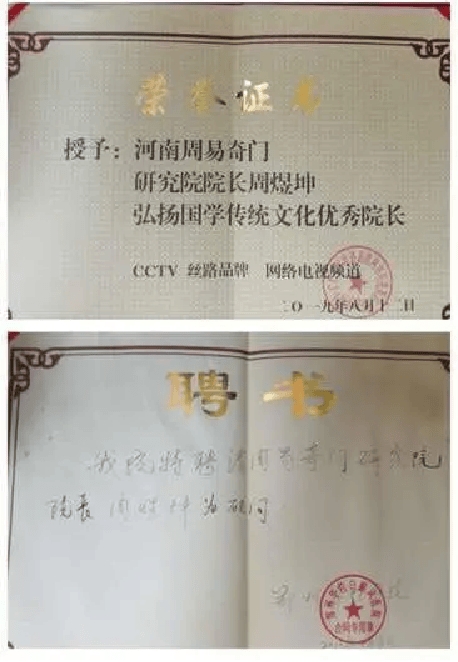 荣誉证书
授予：河南周易奇门
研究院院长周煜坤
弘扬国学传统文化优秀院长
CCTV 丝路品牌 网络电视频道
二〇一九年八月十二日
聘书
我院特聘 周易奇门研究院
院长 周 坤为顾问